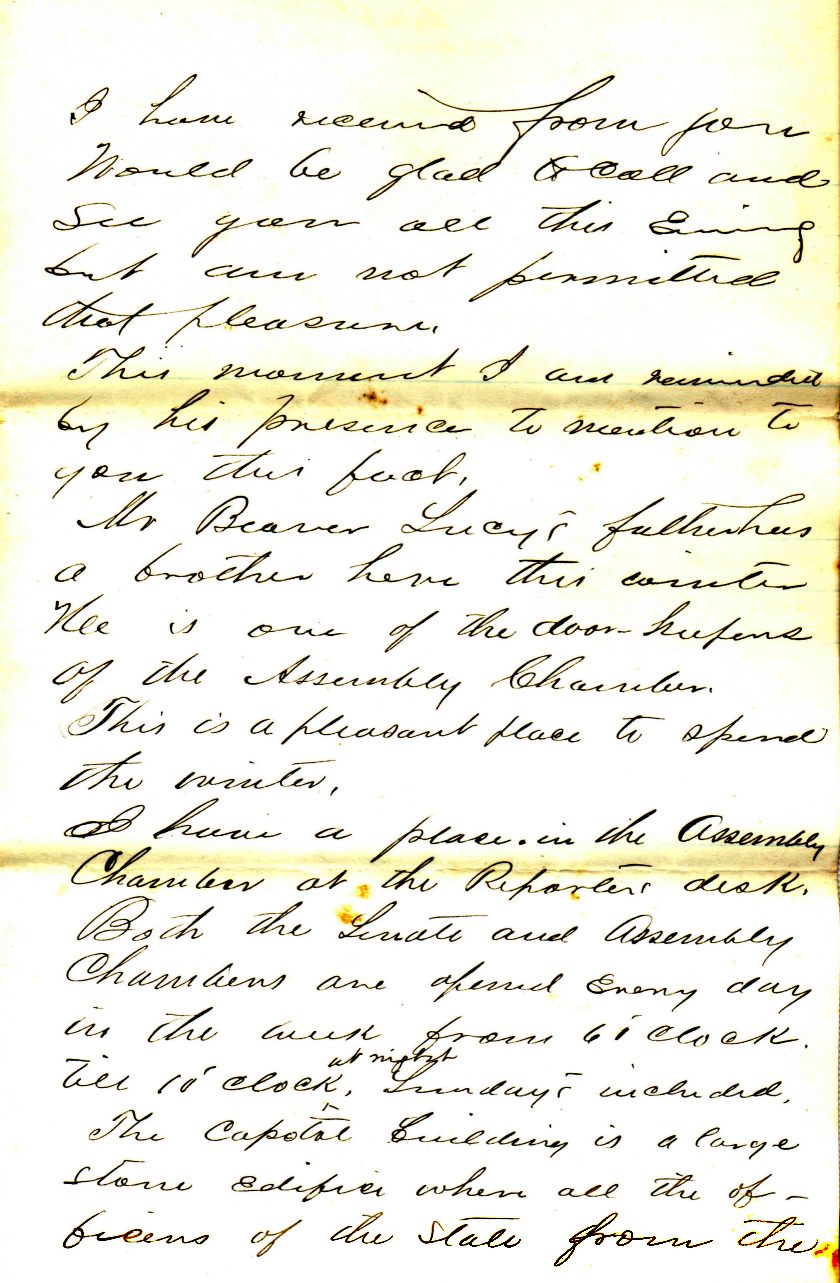 I have received from you
Would be glad to call and
See you all this Evning
but am not permitted
that pleasure.
This moment I am reminded
by his presence to mention to
you this fact.
Mr Beaver Lucy's father has
a brother here this winter
He is one of the door-keepers
of the Assembly Chamber.
This is a pleasant place to spend
the winter.
I have a place in the Assembly
Chamber at the Reporters desk.
Both the Senate and Assembly
Chambers are opened Every day
in the week from 6 o'clock
till 10 o'clock, at night Sunday's included.
The Capital Building is a large
stone Edifice where all the of-
ficers of the State from the